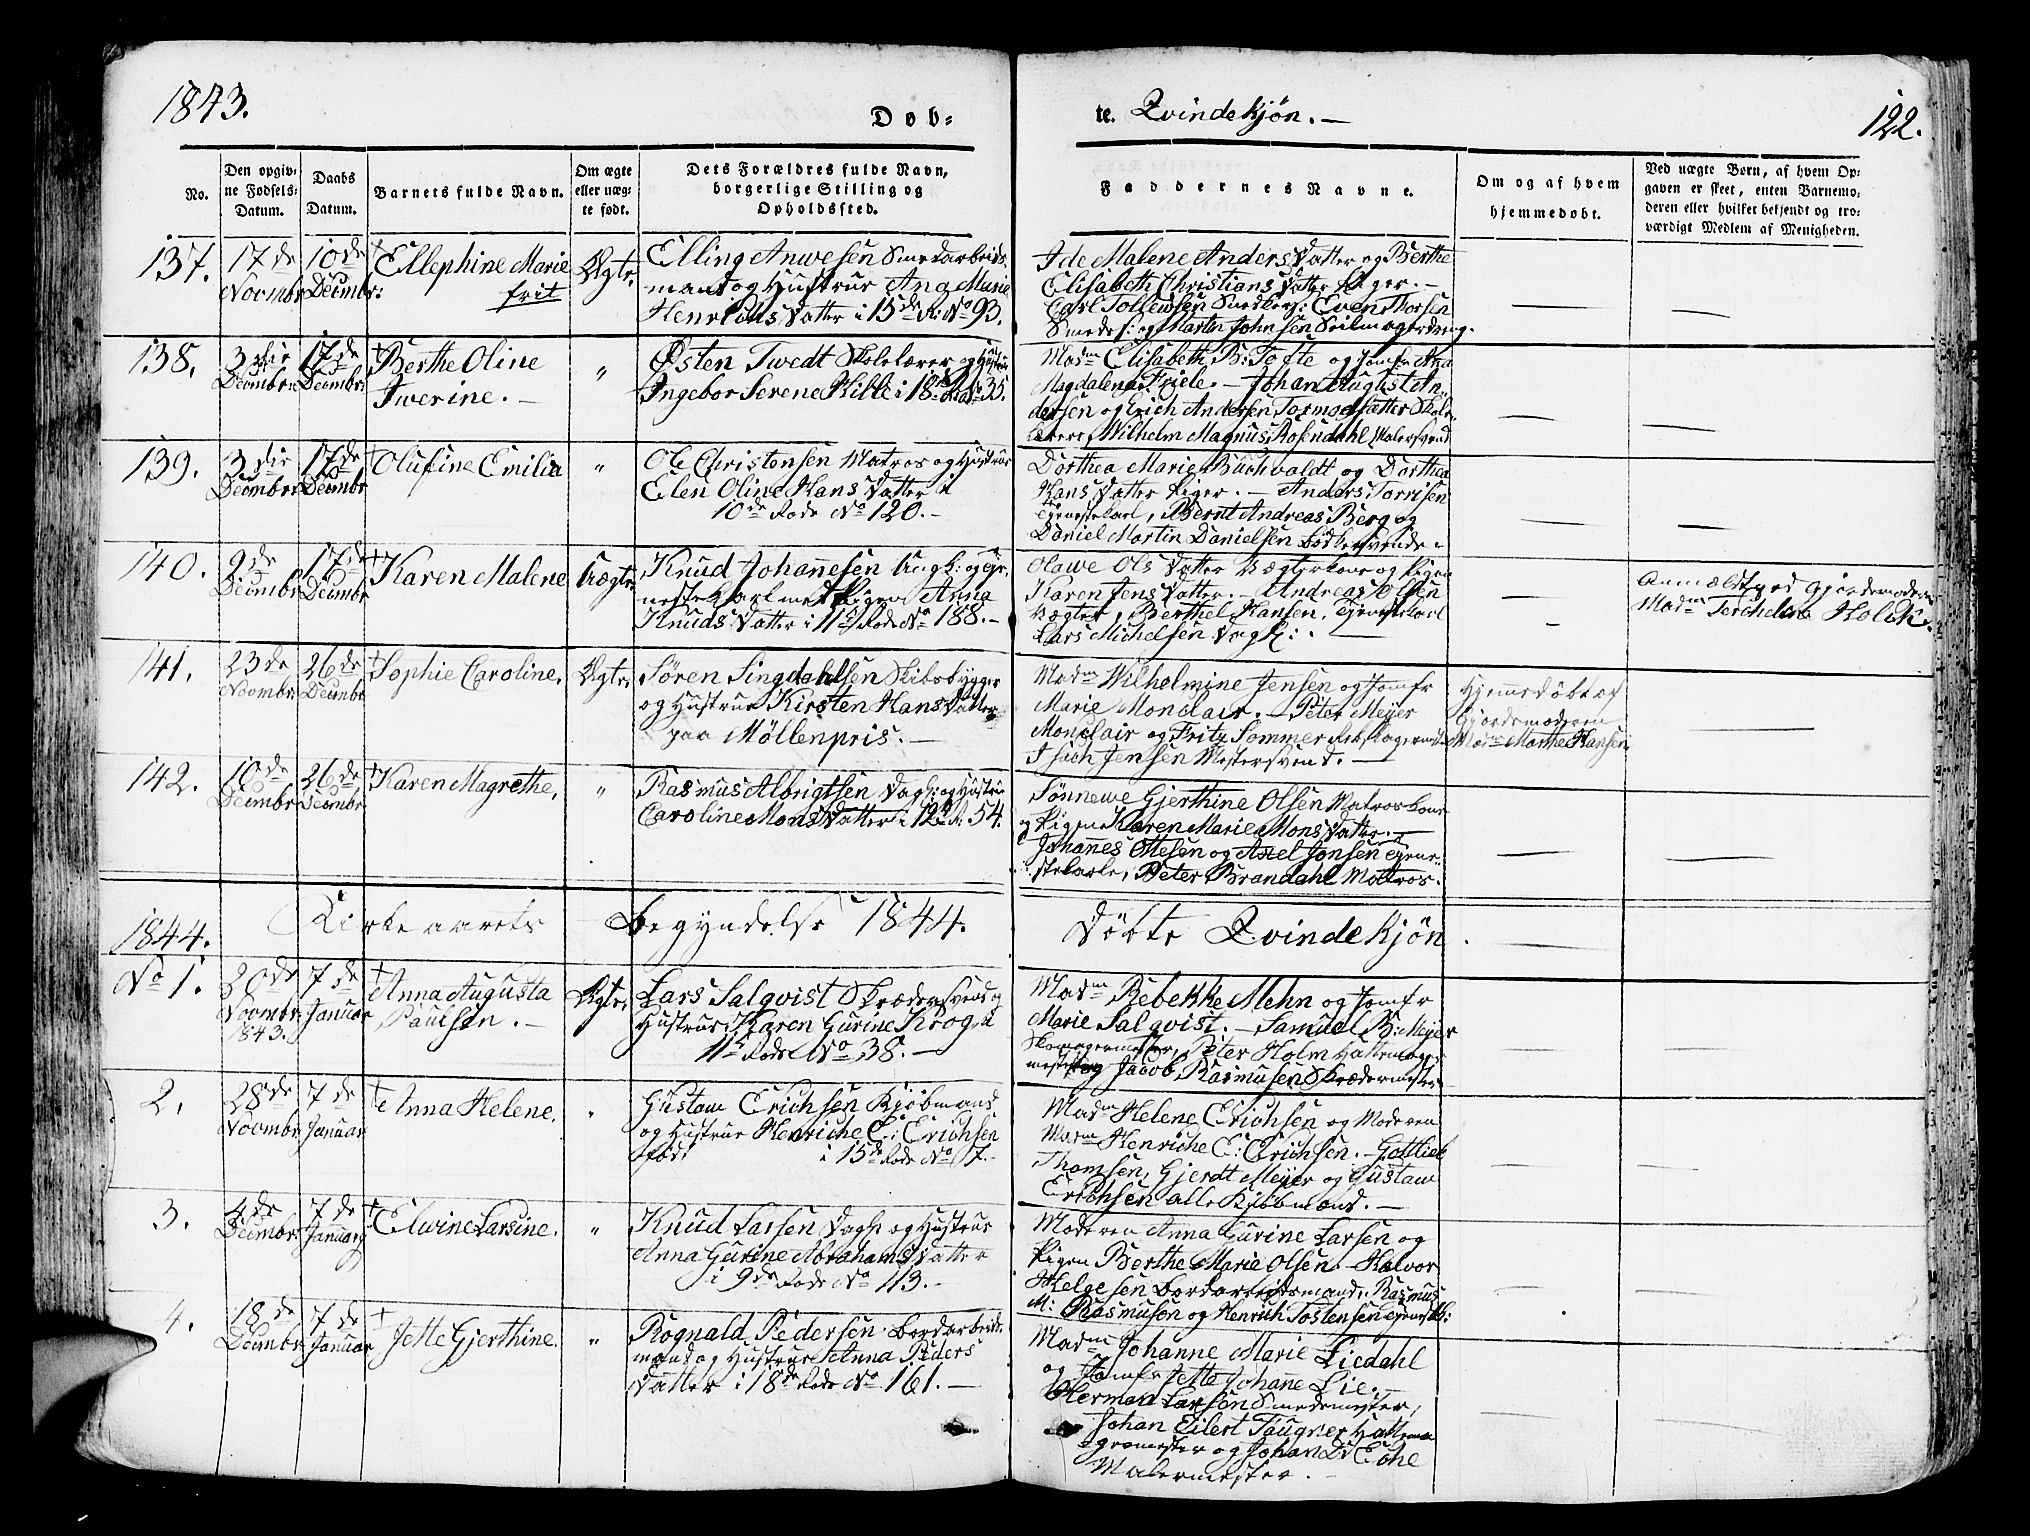 1843.
Døb-
te. Qvindekjøn. —
122.
No.
Den opgiv-
ne Fødsels-
Datum.
Daabs
Datum.
Barnets fulde Navn.
Om ægte
eller uæg-
te født.
Dets Forældres fulde Navn,
borgerlige Stilling og
Opholdssted.
Faddernes Navne.
Om og af hvem
hjemmedøbt.
Ved uægte Børn, af hvem Op-
gaven er skeet, enten Barnemo-
deren eller hvilket bekjendt og tro-
værdigt Medlem af Menigheden.
137.
17de
Novmbr
10de
Decmbr:
Ellephine Marie
frit
Ægte.
Elling Anwesen Smedarbeids-
mand og Hustrue Ana Marie
Henrichs Datter i 15de R: No 93.
Ide Malene Anders Datter og Berthe
Elisabeth Christians Datter Piger. —
Carl Tollewsen Snedkers: Even Thorsen
Smeds: og Martin Johnsen Seilmagerdreng.
138.
3die
Decmbr:
17de
Decmbr:
Berthe Oline
Iwerine. —
"
Østen Twedt Skolelærer og Hustrue
Ingebor Serene Hille i 18de R: No 35.
Madm Elisabeth B: Tofte og Jomfr Ana
Magdalena Friele. — Johan August An-
dersen og Erich Andersen Tormodsætter Skole-
lærere, Wilhelm Magnus Rosendahl Malersvend
139.
3die
Decmbr:
17de
Decmbr
Olufine Emilia
"
Ole Christensen Matros og Hustrue
Elen Oline Hans Datter i
10de Rode No 120. —
Dorthea Marie Buchvaldt og Dorthea
Hans Datter Piger. — Anders Torrisen
Tjenestekarl, Bernt Andreas Berg og
Daniel Martin Danielsen Bødkersvende.
140.
9de
Decmbr
17de
Decmbr
Karen Malene
Uægte.
Knud Johannesen Ungk: og Tje-
nestekarl med Pigen Anna
Knuds Datter i 11te Rode No 188. —
Olawe Ols Datter Vægterkone og Pigen
Karen Jens Datter. — Andreas Olsen
Vægter, Berthel Hansen, Tjenestekarl
Lars Michelsen Dagk:.
Anmældt ved Gjordemoderen
Madm Terchelsen Holck.
141.
23de
Novmbr:
26de
Decmbr
Sophie Caroline.
Ægte.
Søren Singdahlsen Skibsbygger
og Hustrue Kirsten Hans Datter
paa Möllenpris. —
Madm Wilhelmine Jensen og Jomfr
Marie Monclair. — Peter Meyer
Monclair og Fritz Sommer
Isach Jensen Mestersvend. —
Hjemedøbt af
Gjordemoderen
Madm Marthe Hansen
142.
10de
Decmbr
26de
Decmbr
Karen Magrethe.
"
Rasmus Albrigtsen Dagk: og Hustrue
Caroline Mons Datter i 12te R: 54.
Sønnewe Gjerthine Olsen Matroskone
og Pigen Karen Marie Mons Datter. —
Johanes Ottesen og Axel Jonsen Tjene-
stekarle, Peter Brandahl Matros.
1844.
Kirkeaarets Begyndelse 1844.
Døbte Qvindekjøn.
No 1.
20de
Novmbr:
1843.
7de
Januar
Anna Augusta
Paulsen. —
Ægte.
Lars Salqvist Skrædersvend og
Hustrue Karen Gurine Krog i
11te Rode No 38. —
Madm Rebekke Mehn og Jomfr
Marie Salqvist. — Samuel B: Meyer
Skomagermester, Peter Holm Hattemager-
mester og Jacob Rasmusen Skrædermester
2.
28de
Novmbr
7de
Januar
Anna Helene.
"
Gustaw Erichsen Kjøbmand
og Hustrue Henriche E: Erichsen
født i 15de Rode No 17. —
Madm Helene Erichsen og Moderen
Madm Henriche E: Erichsen. — Gottlieb
Thomsen, Gjerdt Meyer og Gustaw
Erichsen alle Kjøbmænd. —
3.
4de
Decmbr:
7de
Januar
Elwine Larsine.
"
Knud Larsen Dagk og Hustrue
Anna Gurine Abrahams Datter
i 9de Rode No 113. —
Moderen Anna Gurine Larsen og
Pigen Berthe Marie Olsen. — Halvor
Helgesen Bordarbeidsmand, Rasmus
M: Rasmusen og Henrich Tostensen Tjenestk:
4.
18de
Decmbr
7de
Januar
Jette Gjerthine.
"
Rognald Pedersen Bordarbeids-
mand og Hustrue Anna Peders
Datter i 18de Rode No 161. —
Madm Johanne Marie Liedahl
og Jomfr Jette Johane Lie. —
Herman Larsen Smedemester,
Johan Eilert Taugner Hattema-
germester og Johan D: Eche
Malermester. —